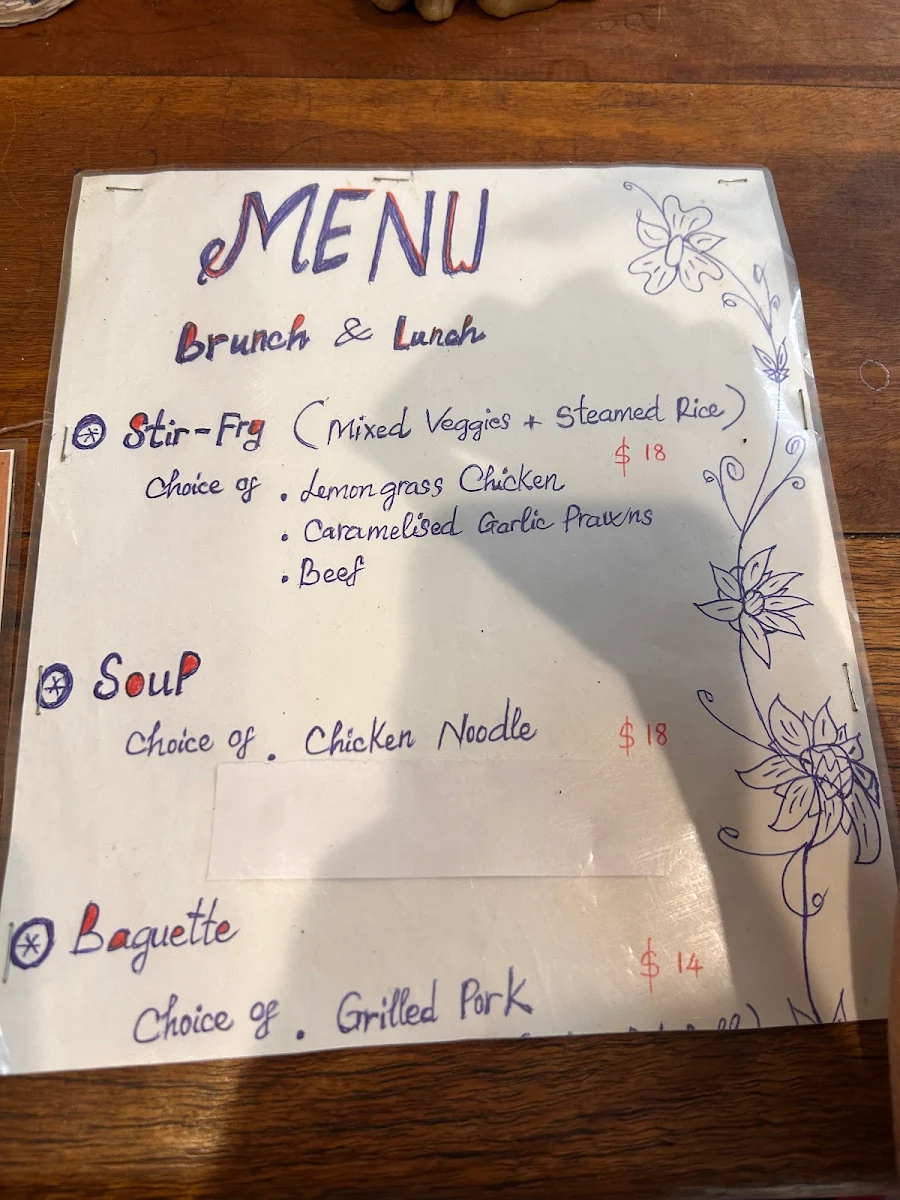 MENU
Brunch & Lunch
Stir-Fry (Mixed Veggies + Steamed Rice)
$ 18
Choice of . Lemongrass Chicken
. Caramelised Garlic Prawns
. Beef
Soup
Choice of . Chicken Noodle $ 18
Baguette
$ 14
Choice of . Grilled Pork